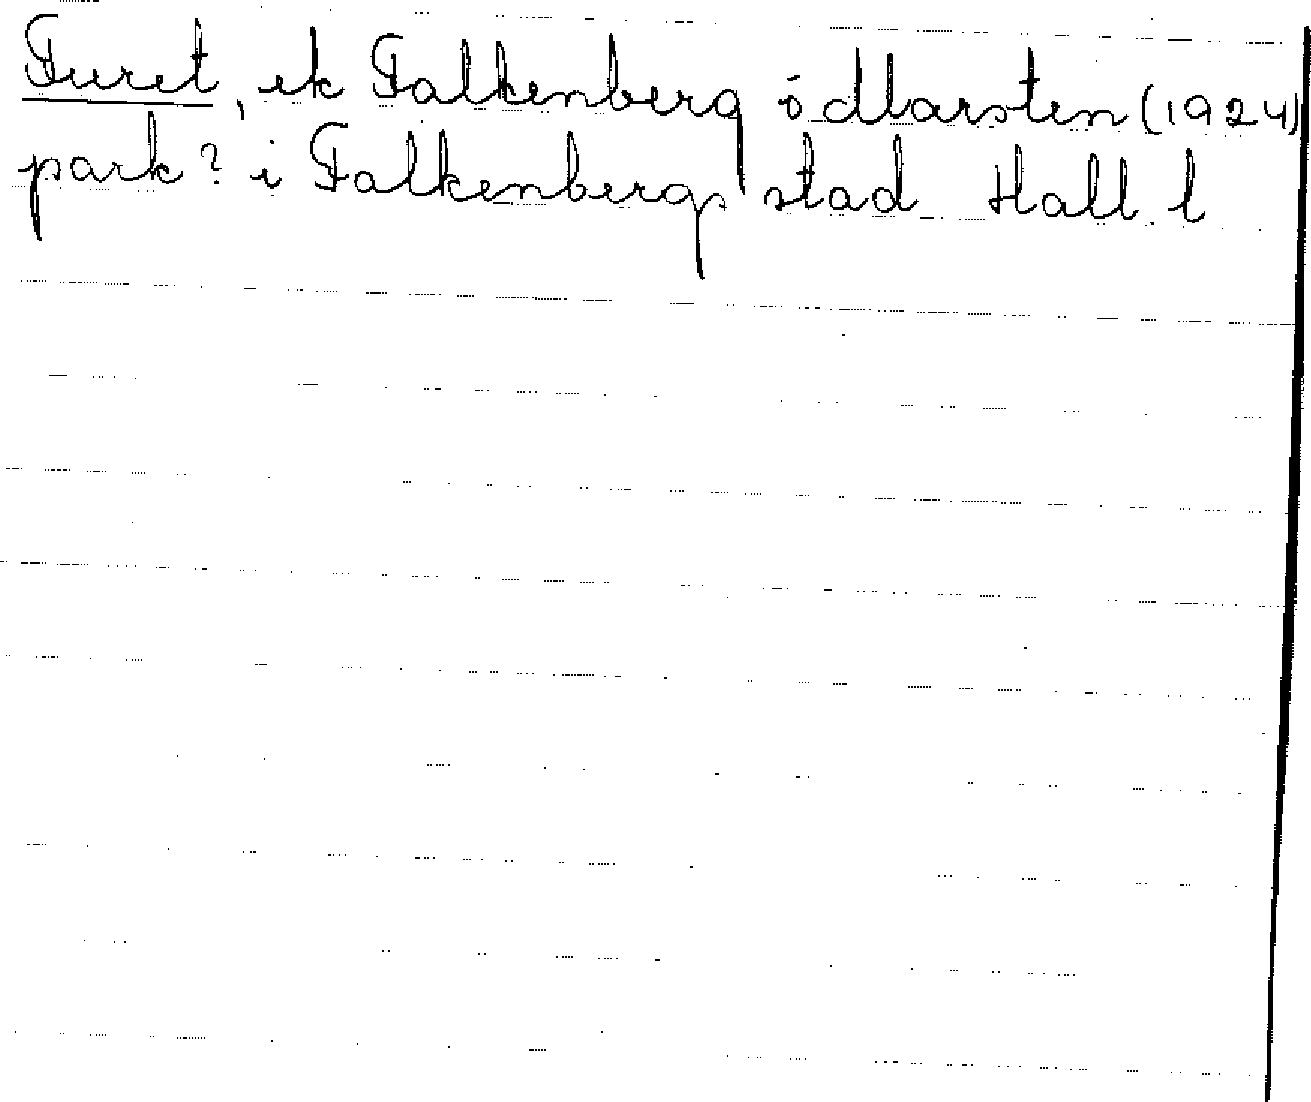 Furet, ek Falkenberg ö Marsten (1924)
park? i Falkenbergs stad Hall. l